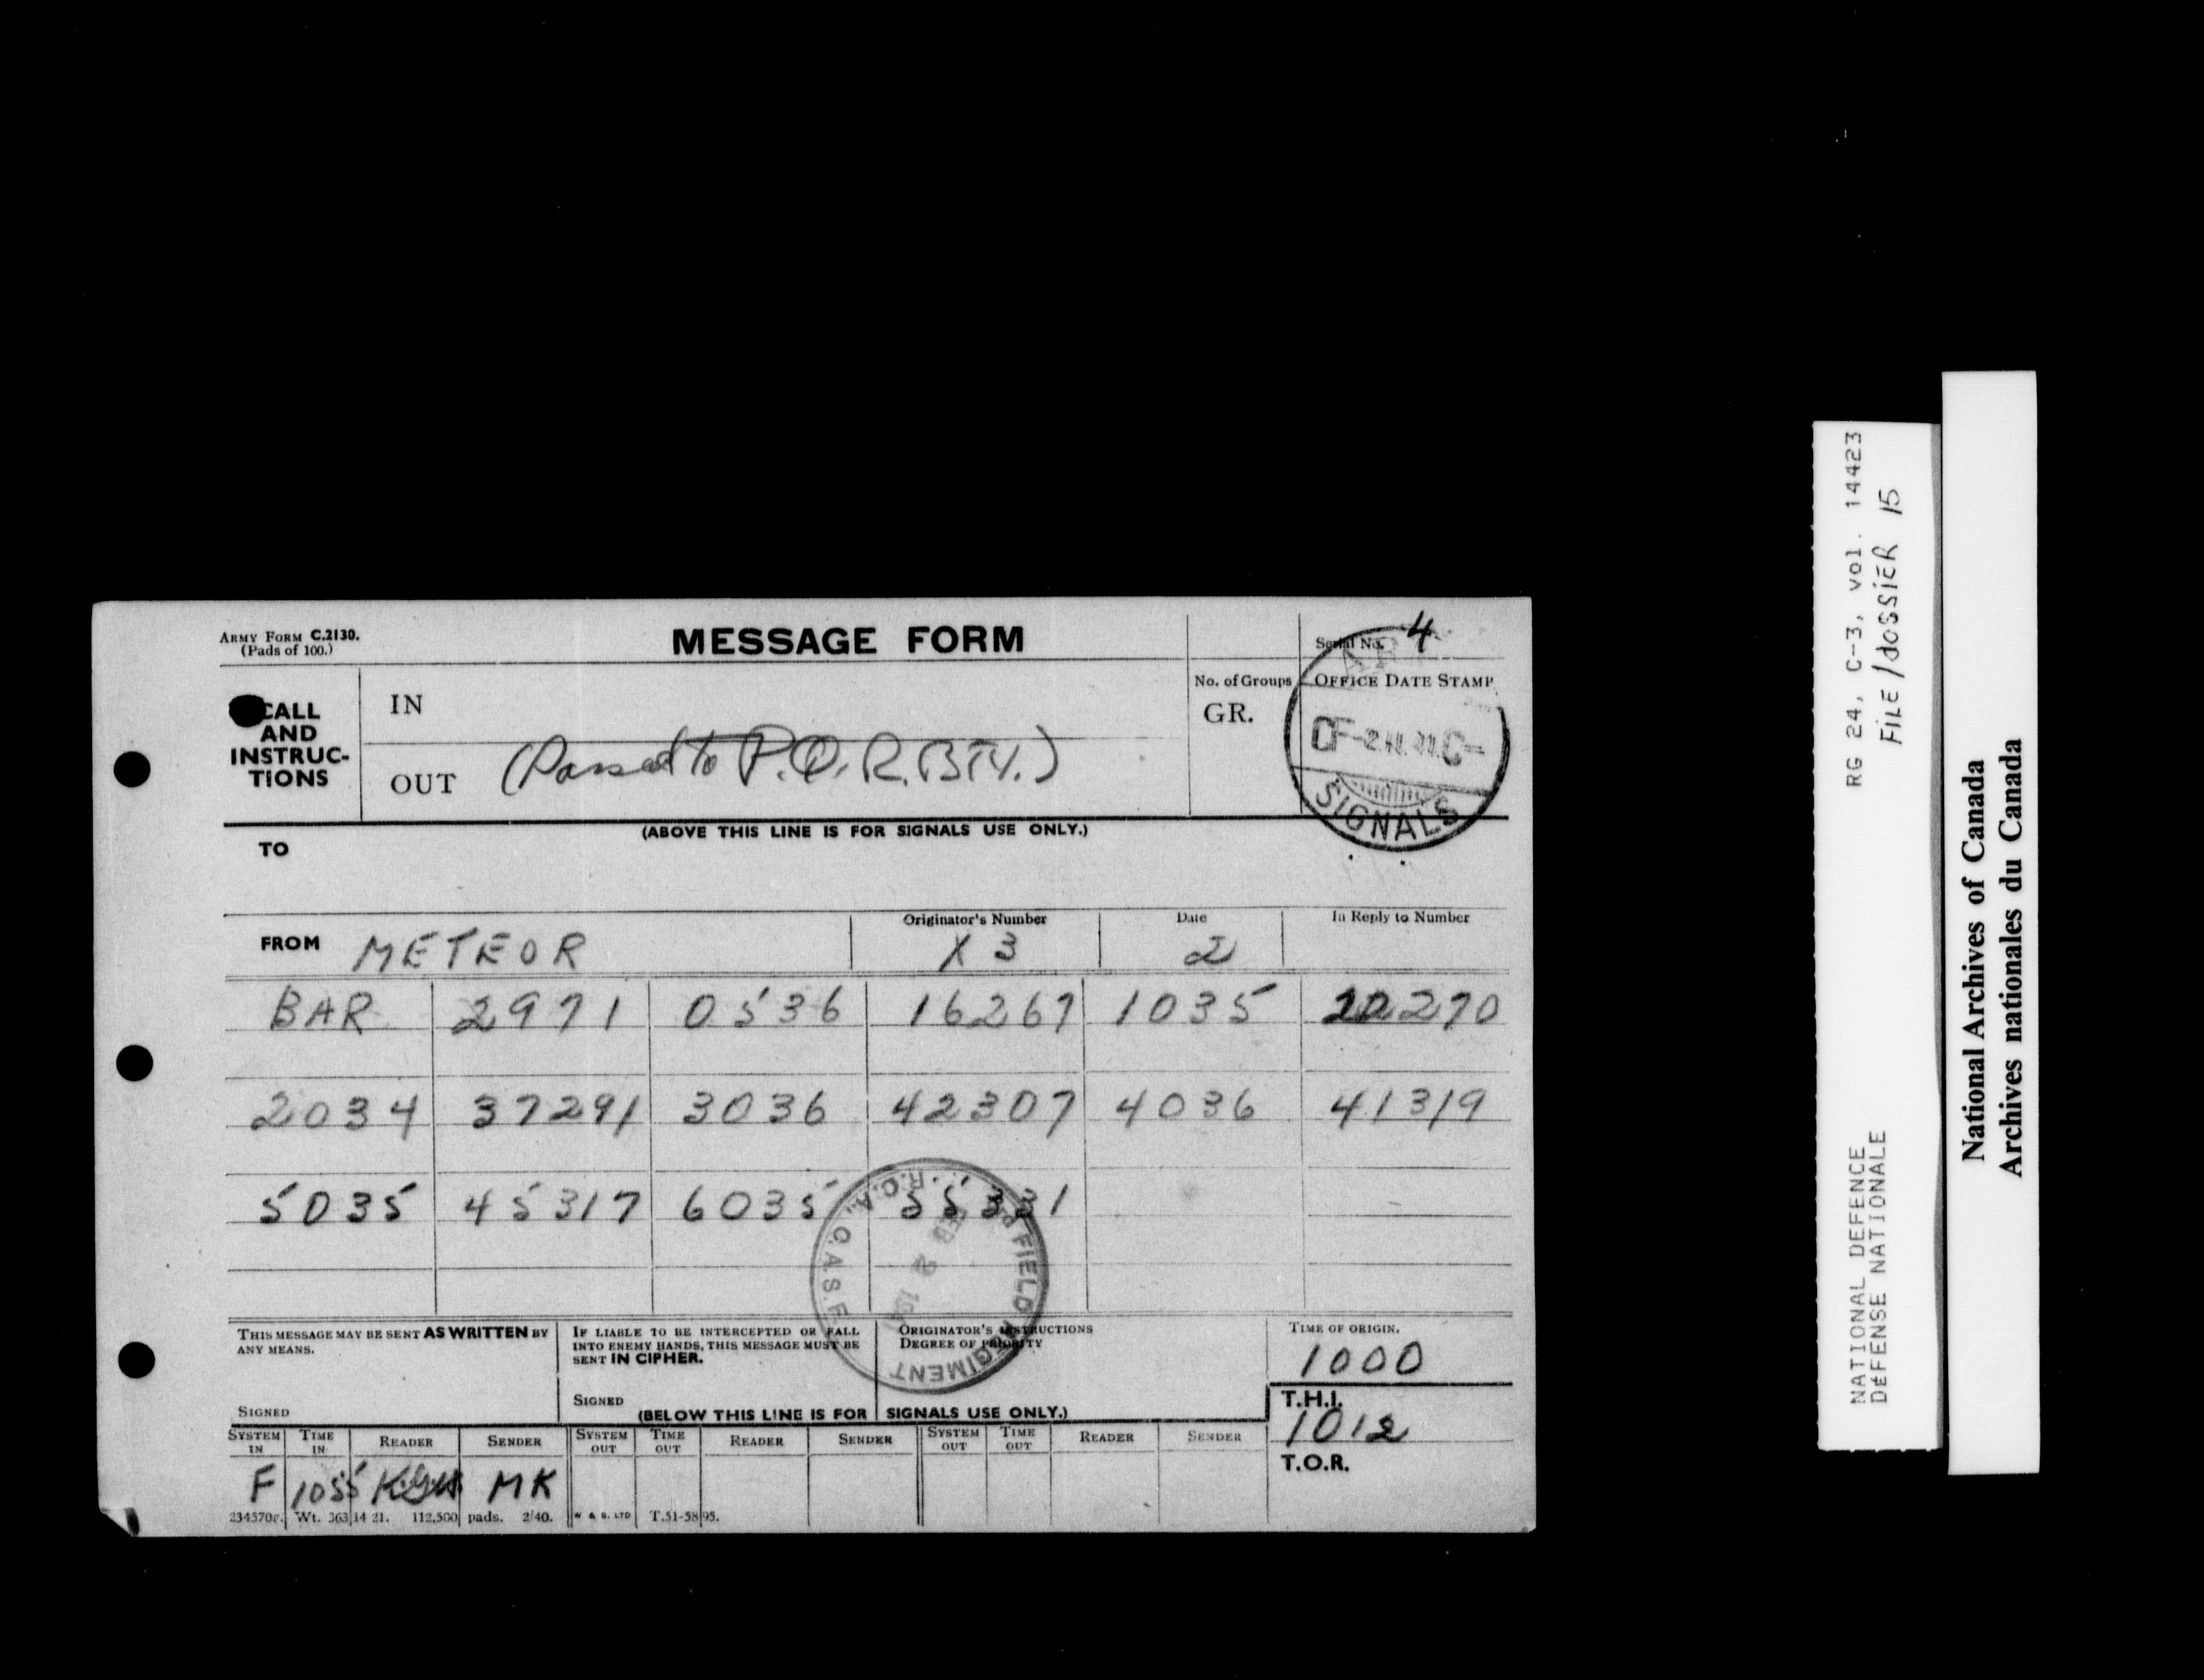 ARMY FORM C.2130.
(Pads of 100.)
MESSAGE FORM
Serial No. 4
CALL
AND
INSTRUC-
TIONS
IN
OUT (Passed to P.Q.R. BTY.)
No. of Groups
GR.
OFFICE DATE STAMP
SIGNALS
(ABOVE THIS LINE IS FOR SIGNALS USE ONLY.)
TO
FROM METEOR
Originator's Number
X 3
Date
2
In Reply to Number
BAR 2971 0536 16267 1035 22270
2034 37291 3036 42307 4036 41319
5035 45317 6035 55331
FIELD REGIMENT R.C.A., C.A.S.F.
FEB 2
THIS MESSAGE MAY BE SENT AS WRITTEN BY
ANY MEANS.
SIGNED
IF LIABLE TO BE INTERCEPTED OR FALL
INTO ENEMY HANDS, THIS MESSAGE MUST BE
SENT IN CIPHER.
SIGNED
ORIGINATOR'S INSTRUCTIONS
DEGREE OF PRIORITY
TIME OF ORIGIN.
1000
T.H.I.
1012
T.O.R.
(BELOW THIS LINE IS FOR SIGNALS USE ONLY.)
SYSTEM IN TIME IN READER SENDER SYSTEM OUT TIME OUT READER SENDER SYSTEM OUT TIME OUT READER SENDER
F 1055 MK
Wt. 363 14 21. 112,500 pads. 2/40. W & S. LTD T.51-5895.
RG 24, C-3, vol. 14423
FILE/dossier 15
NATIONAL DEFENCE
DÉFENSE NATIONALE
National Archives of Canada
Archives nationales du Canada